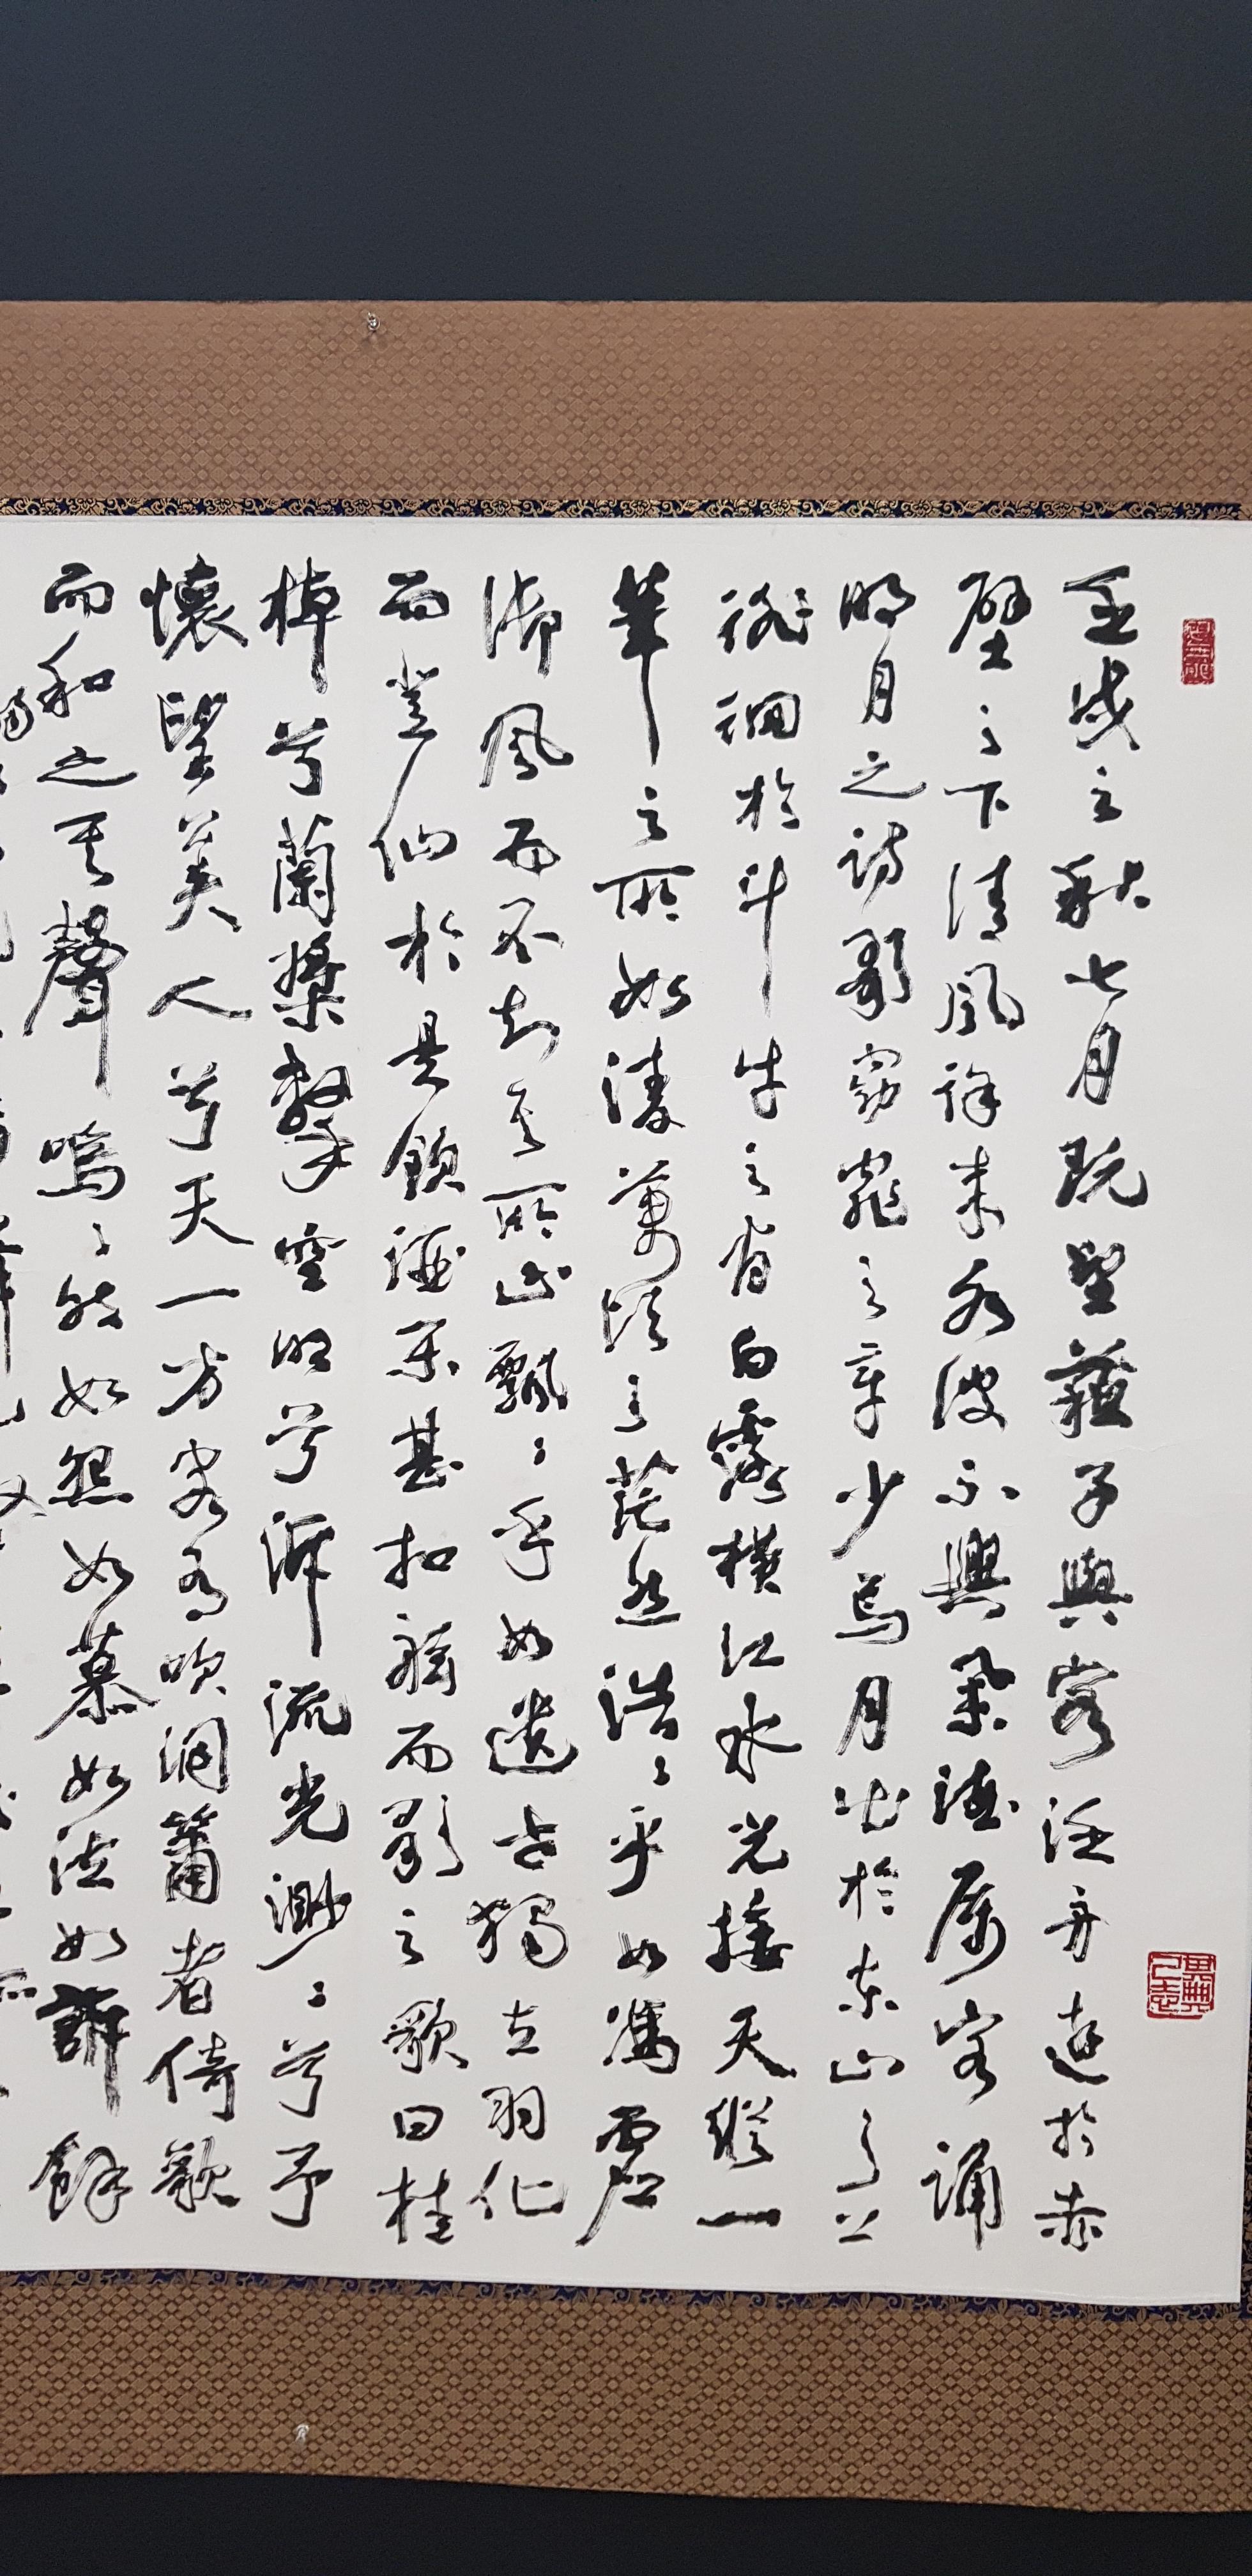 壬戌之秋七月既望蘇子與客泛舟遊於赤
壁之下清風徐来水波不興舉酒属客誦
明月之詩歌窈窕之章少焉月出於東山之上
徘徊於斗牛之間白露橫江水光接天縱一
葦之所如淩萬頃之茫然浩〻乎如馮虛
御風而不知其所止飄〻乎如遺世獨立羽化
而登仙於是飲酒樂甚扣舷而歌之歌曰桂
棹兮蘭槳擊空明兮泝流光渺〻兮予
懷望美人兮天一方客有吹洞簫者倚歌
而和之其聲嗚〻然如怨如慕如泣如訴餘